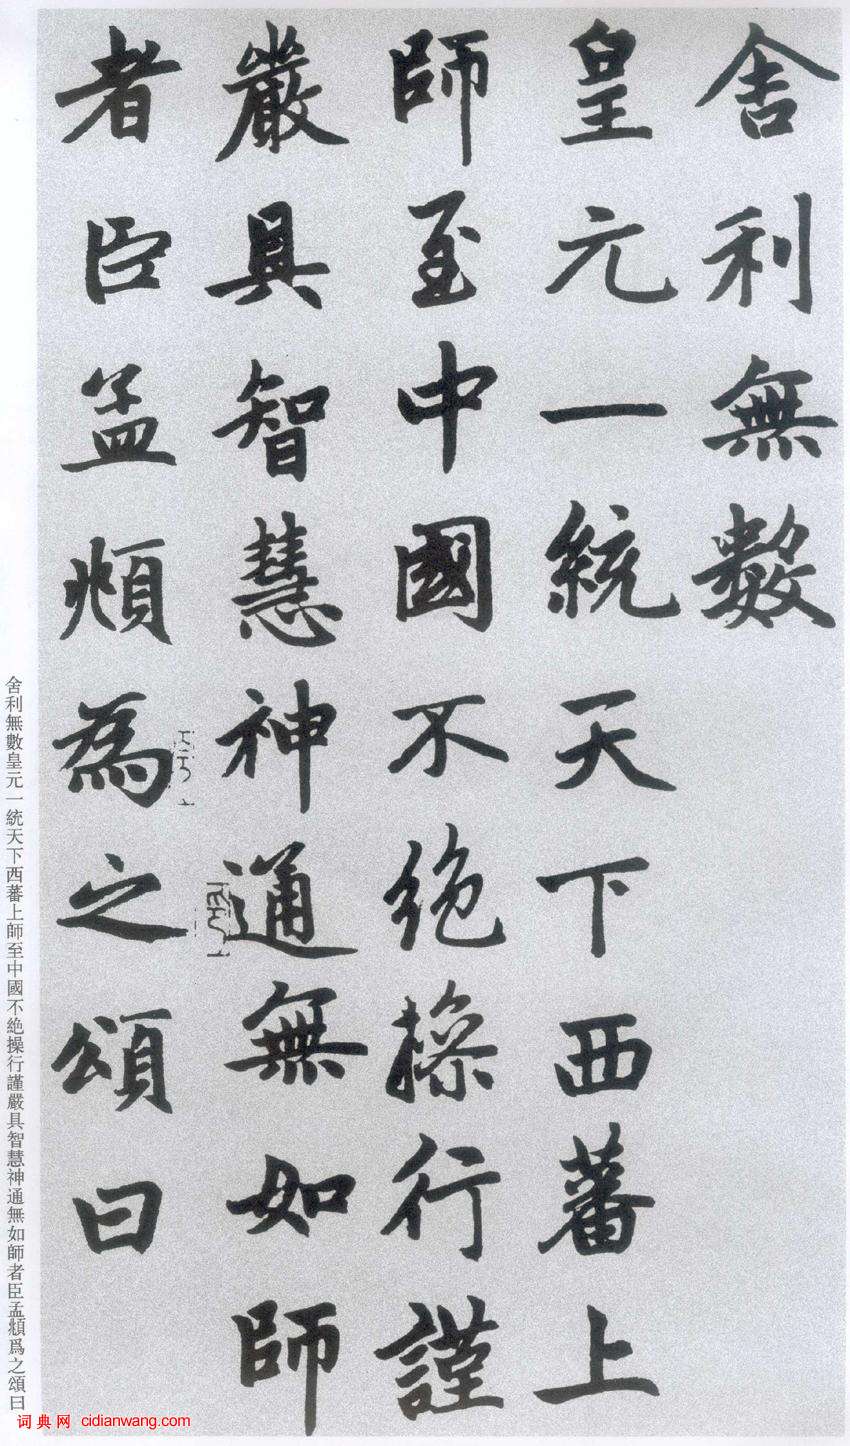 舍利無數
皇元一統天下西蕃上
師至中國不絕操行謹
嚴具智慧神通無如師
者臣孟頫為之頌曰
舍利無數皇元一統天下西蕃上師至中國不絶操行謹嚴具智慧神通無如師者臣孟頫爲之頌曰
词典网 cidianwang.com